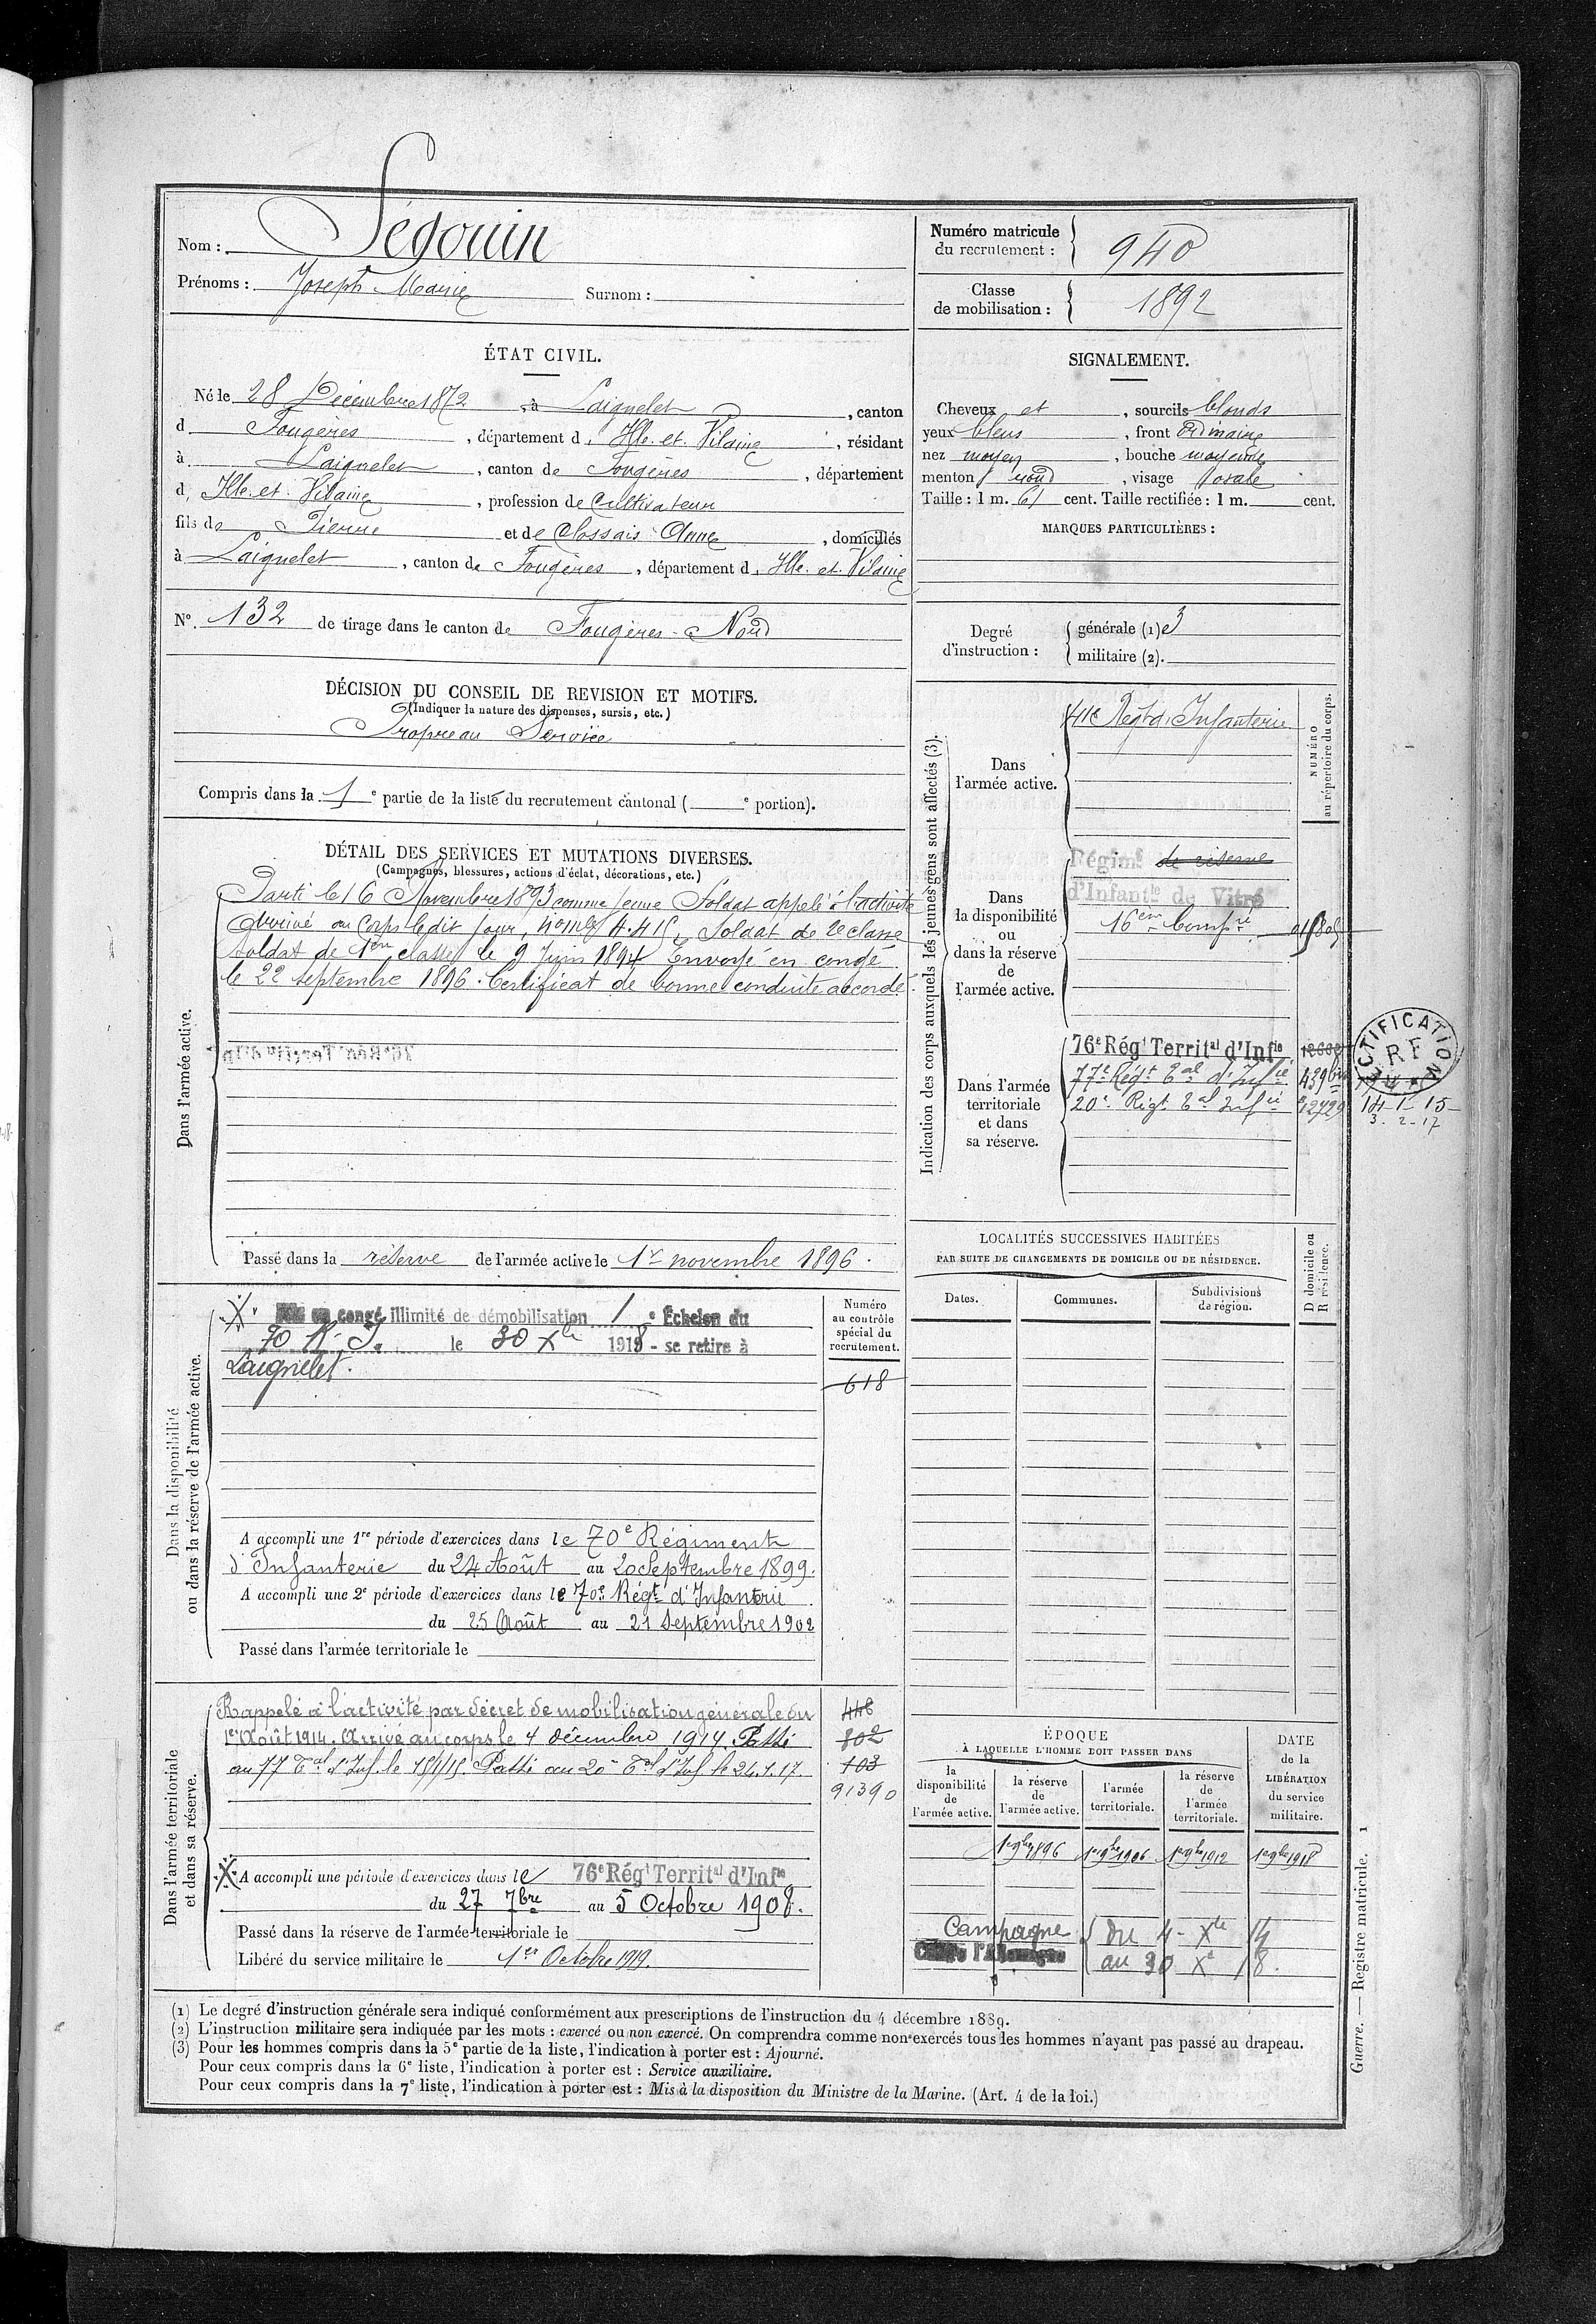 Nom : Ségouin
Prénoms : Joseph Marie Surnom :
Numéro matricule du recrutement : 940
Classe de mobilisation : 1892
ÉTAT CIVIL.
Né le 28 Décembre 1872, à Laignelet, canton
d Fougères, département d, Ille-et-Vilaine, résidant
à Laignelet, canton de Fougères, département
d, Ille-et-Vilaine, profession de Cultivateur
fils de Pierre et de Clossais Anne, domiciliés
à Laignelet, canton de Fougères, département d, Ille-et-Vilaine
N° 132 de tirage dans le canton de Fougères-Nord
SIGNALEMENT.
Cheveux et, sourcils blonds
yeux bleus, front Ordinaire
nez moyen, bouche moyenne
menton rond, visage ovale
Taille : 1 m. 61 cent. Taille rectifiée : 1 m. cent.
MARQUES PARTICULIÈRES :
Degré d'instruction :
générale (1) 3
militaire (2).
DÉCISION DU CONSEIL DE REVISION ET MOTIFS.
(Indiquer la nature des dispenses, sursis, etc.)
Propre au Service
Compris dans la 1e partie de la liste du recrutement cantonal ( e portion).
DÉTAIL DES SERVICES ET MUTATIONS DIVERSES.
(Campagnes, blessures, actions d'éclat, décorations, etc.)
Dans l'armée active.
Parti le 16 Novembre 1893 comme jeune Soldat appelé à l'activité
Arrivé au Corps ledit jour, Soldat de 2e classe
Soldat de 1ère classe le 9 Juin 1894 Envoyé en congé
le 22 septembre 1896. Certificat de bonne conduite accordé.
Passé dans la réserve de l'armée active le 1er novembre 1896.
Indication des corps auxquels les jeunes gens sont affectés (3).
NUMÉRO au répertoire du corps.
Dans l'armée active.
41e Régt d'Infanterie
Dans la disponibilité ou dans la réserve de l'armée active.
Régimt de réserve
d'Infantie de Vitré
16em Compie
Dans l'armée territoriale et dans sa réserve.
76e Régt Territal d'Infie
77e Régt Tal d'Infie 439 bis
20e Régt Tal Infie 12729
RECTIFICATION
RF
14-1-15
3-2-17
LOCALITÉS SUCCESSIVES HABITÉES
PAR SUITE DE CHANGEMENTS DE DOMICILE OU DE RÉSIDENCE.
Dates. Communes. Subdivisions de région. D domicile ou R résidence.
Dans la disponibilité ou dans la réserve de l'armée active.
congé illimité de démobilisation 1e Échelon du
70 R.I. le 30 Xbre 1918 - se retire à
Laignelet.
Numéro au contrôle spécial du recrutement.
618
A accompli une 1re période d'exercices dans le 70e Régiment
d'Infanterie du 24 Août au 20 Septembre 1899.
A accompli une 2e période d'exercices dans le 70e Régt d'Infanterie
du 25 Août au 21 Septembre 1902
Passé dans l'armée territoriale le
Dans l'armée territoriale et dans sa réserve.
Rappelé à l'activité par décret de mobilisation générale du
1er Août 1914. Arrivé au corps le 4 décembre 1914. Passé
au 77e Tal d'Inf. le 15/1/15. Passé au 20e Tal d'Inf. le 24.1.17.
448
802
103
91390
A accompli une période d'exercices dans le 76e Régt Territal d'Infie
du 27 7bre au 5 Octobre 1908.
Passé dans la réserve de l'armée territoriale le
Libéré du service militaire le 1er Octobre 1919.
ÉPOQUE
À LAQUELLE L'HOMME DOIT PASSER DANS
la disponibilité de l'armée active.
la réserve de l'armée active.
l'armée territoriale.
la réserve de l'armée territoriale.
DATE de la LIBÉRATION du service militaire.
1er 9bre 1896 1er 9bre 1906 1er 9bre 1912 1er 9bre 1918
Campagne du 4 Xbre 14
Contre l'Allemagne au 30 Xe 18.
(1) Le degré d'instruction générale sera indiqué conformément aux prescriptions de l'instruction du 4 décembre 1889.
(2) L'instruction militaire sera indiquée par les mots : exercé ou non exercé. On comprendra comme non exercés tous les hommes n'ayant pas passé au drapeau.
(3) Pour les hommes compris dans la 5e partie de la liste, l'indication à porter est : Ajourné.
Pour ceux compris dans la 6e liste, l'indication à porter est : Service auxiliaire.
Pour ceux compris dans la 7e liste, l'indication à porter est : Mis à la disposition du Ministre de la Marine. (Art. 4 de la loi.)
Guerre. — Registre matricule. 1